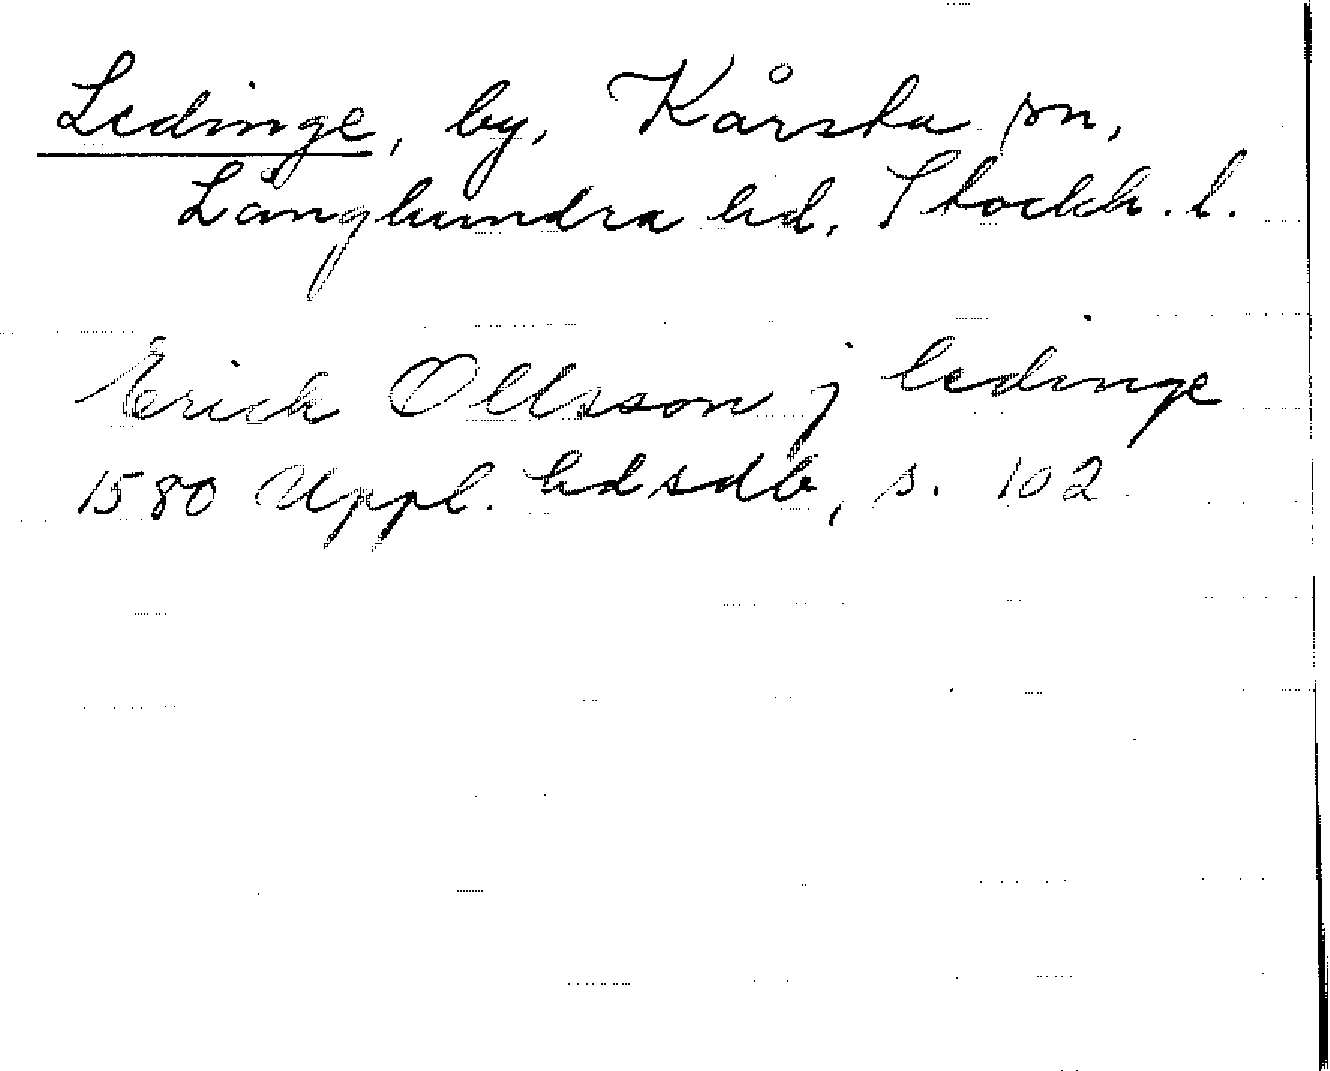 Ledinge, by, Kårsta sn,
Långhundra hd. Stockh. l.
Erich Ollsson j ledinge
1580 Uppl. hdsdb, s. 102